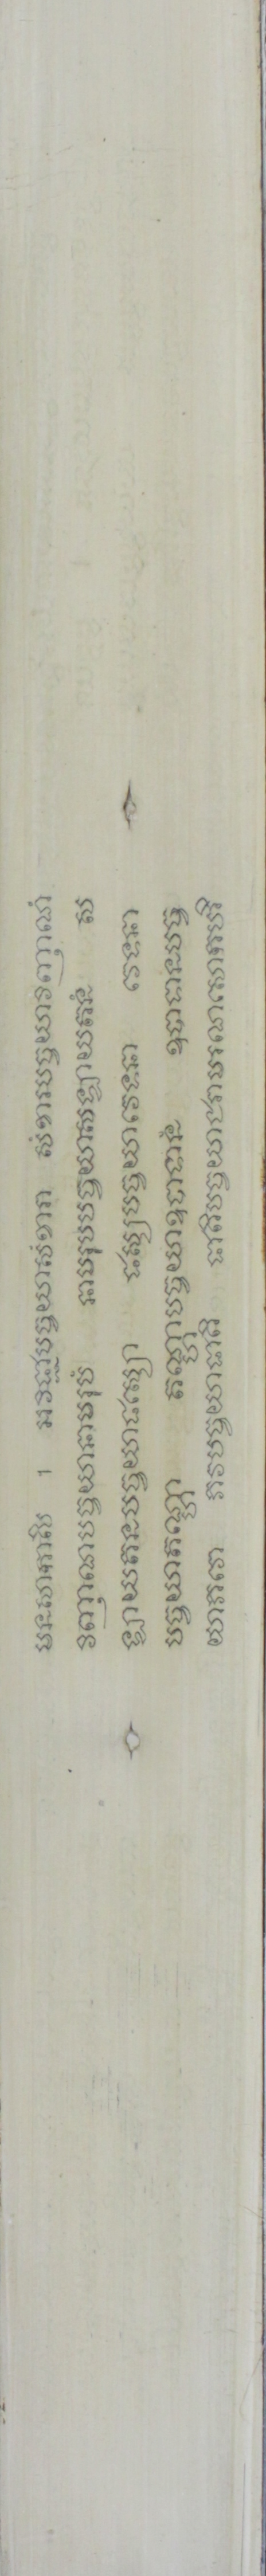 មនសាកាសិ ១ អវជ្ជាបច្ចយាសំខារា សំខារបច្ចយាវញ្ញាណំ
វញ្ញាណបច្ចយានាមរុបំ នាមរុបបច្ចយាសឡ្ហាយតនំ ស
ឡ្ហាយតនបច្ចយាផស្សោ ផស្សបច្ចយាវេទនា វេទនា
បច្ចយាតណ្ហា តណ្ហាបច្ចយាឧបាទានំ ឧបាទានបច្ច
យាភវោ ភវបច្ចយាជាតិ ជាតិបច្ចយាជរាមរណសោកបរិ